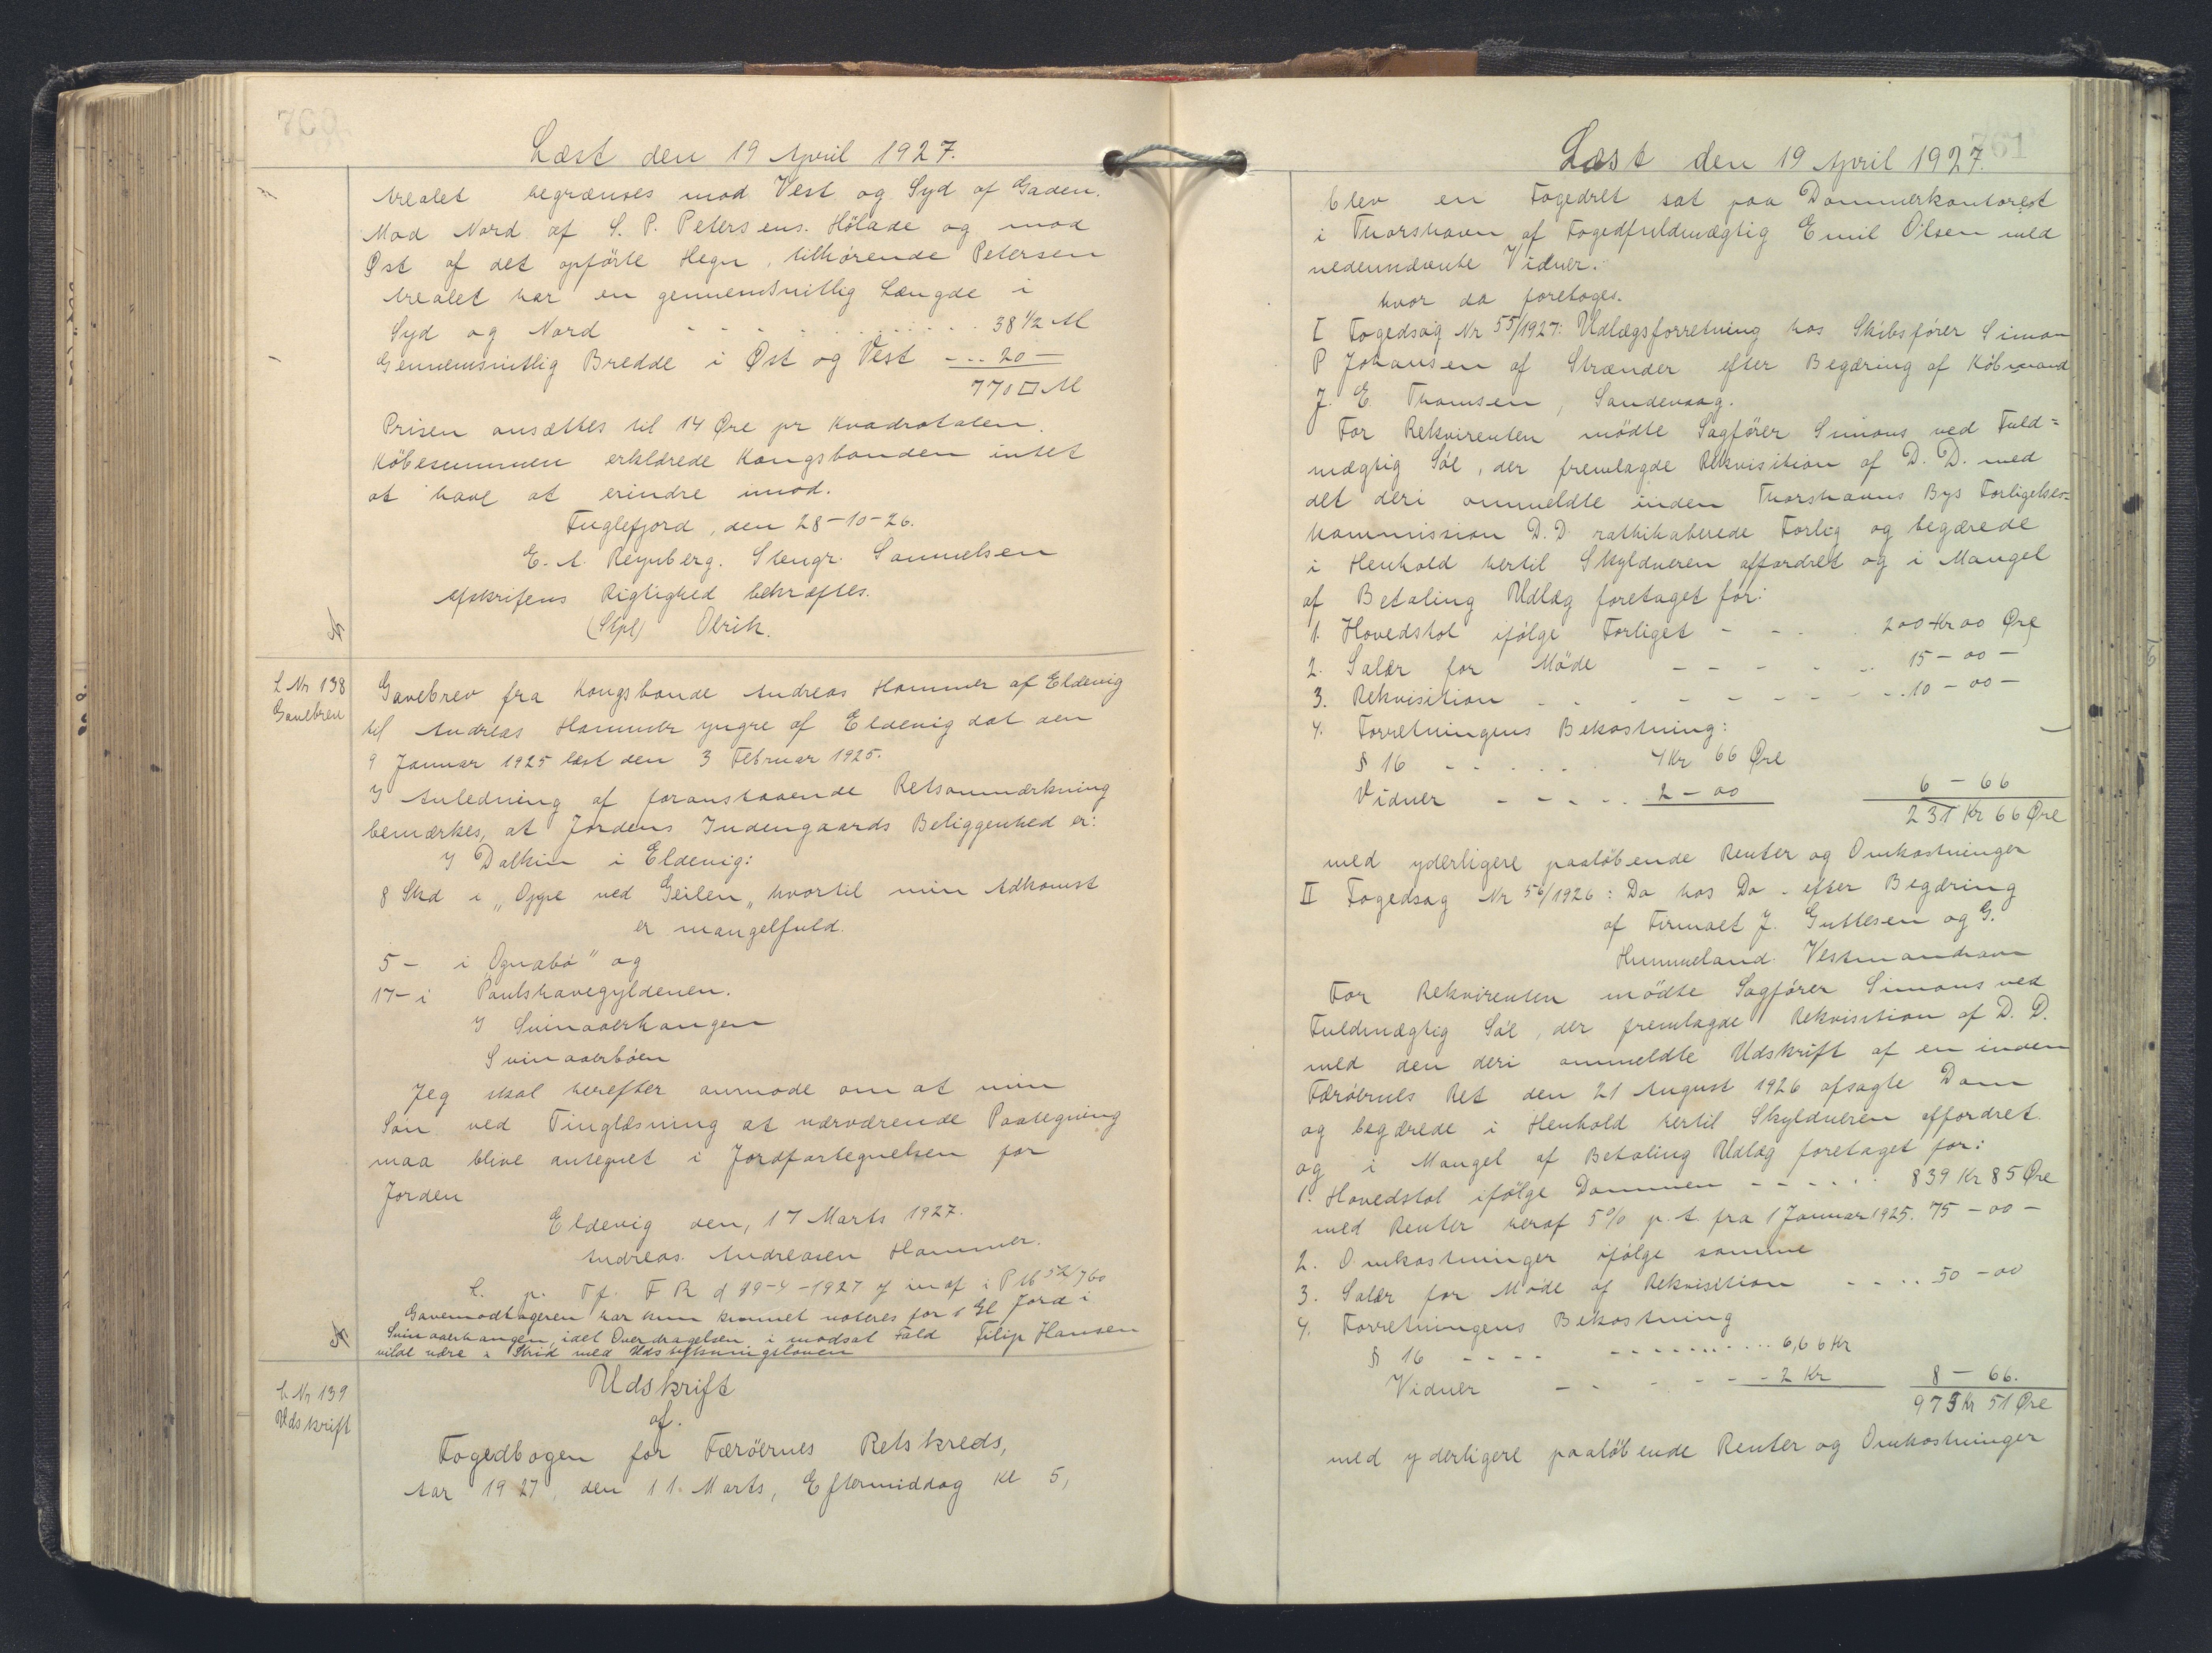 760
Læst den 19 April 1927.
Arealet begrænses mod Vest og Syd af Gaden.
Mod Nord af S. P. Petersens. Hölade og mod
Øst af det opförte Hegn, tilhørende Petersen
Arealet har en gennemsnitlig Længde i
Syd og Nord - - - - - - 38 1/2 M
Gennemsnitlig Bredde i Øst og Vest - - - 20 -
770 □ M
Prisen ansættes til 14 Øre pr Kvadratalen.
Köbesummen erklærede Kongsbonden intet
at have at erindre imod.
Fuglefjord, den 28-10-26.
E. A. Reynberg. Stengr. Samuelsen
Afskrifens Rigtighed bekræftes.
(Stpl) Olrik.
L Nr 138
Gavebrev
Gavebrev fra Kongsbonde Andreas Hammer af Eldevig
til Andreas Hammer yngre af Eldevig dat den
9 Januar 1925 læst den 3 Februar 1925.
I Anledning af foranstaaende Retsanmærkning
bemærkes, at Jordens Indengaards Beliggenhed er:
I Dalkin i Eldevig:
8 Skd i „Oyre ved Geilen„ hvortil min Adkomst
er mangelfuld.
5 - i Ognabö" og
17 - i Poulshavegyldenen.
I Svinaaerhangen
Svinaaerbøen
Jeg skal herefter anmode om at min
Søn ved Tinglæsning at nærværende Paategning
maa blive antegnet i Jordfortegnelsen for
Jorden
Eldevig den, 17 Marts 1927.
Andreas. Andreasen Hammer.
L. p. Tf. F R d 19-4-1927 & inf i P M 52/760
Gavemodtageren har kun kunnet noteres for 1 Gl Jord i
Svinaaerhangen, idet Overdragelsen i modsat Fald Filip Hansen
vilde være i Strid med Udstykningsloven
L Nr 139
Udskrift
Udskrift
af.
Fogedbogen for Færöernes Retskreds,
Aar 1927, den 11. Marts, Eftermiddag Kl 5,
761
Læst den 19 April 1927.
blev en Fogedret sat paa Dommerkontoret
i Thorshavn af Fogedfuldmægtig Emil Olsen med
nedennævnte Vidner.
hvor da foretoges.
I Fogedsag Nr 55/1927: Udlægsforretning hos Skibsfører Simon
P Johansen af Strænder efter Begæring af Købmand
J. E. Thomsen, Sandevaag.
For Rekvirenten mödte Sagfører Simons ved Fuld=
mægtig Søe, der fremlagde Rekvisition af D. D. med
det deri ommeldte inden Thorshavns Bys Forligelses=
kommission D. D rathihaberede Forlig og begærede
i Henhold hertil Skyldneren affordret og i Mangel
af Betaling Udlæg foretaget for:
1. Hovedstol ifölge Forliget - - - 200 Kr 00 Øre
2. Salær for Møde - - - - - 15 - 00 -
3. Rekvisition - - - - - - - 10 - 00 -
4. Forretningens Bekostning:
§ 16 - - - - - 4 Kr 66 Øre
Vidner - - - - - 2 - 00 6 - 66
231 Kr 66 Øre
med yderligere paaløbende Renter og Omkostninger
II Fogedsag Nr 56/1926: Do hos Do - efter Begæring
af Firmaet J. Guttesen og G.
Hummeland. Vestmandhavn
For Rekvirenten mödte Sagfører Simons ved
Fuldmægtig Søe, der fremlagde Rekvisition af D. D.
med den deri ommeldte Udskrift af en inden
Færøernes Ret den 21 August 1926 afsagte Dom
og begærede i Henhold hertil Skyldneren affordret
og i Mangel af Betaling Udlæg foretaget for:
1. Hovedstol ifölge Dommen - - - - - 839 Kr 85 Øre
med Renter heraf 5% p. A. fra 1 Januar 1925. 75 - 00 -
2. Omkostninger ifölge samme
3. Salær for Møde af Rekvisition - - - - 50 - 00
4. Forretningens Bekostning
§ 16 - - - - - - - - - - 6,66 Kr
Vidner - - - - - - 2 Kr 8 - 66.
973 Kr 51 Øre
med yderligere paaløbende Renter og Omkostninger